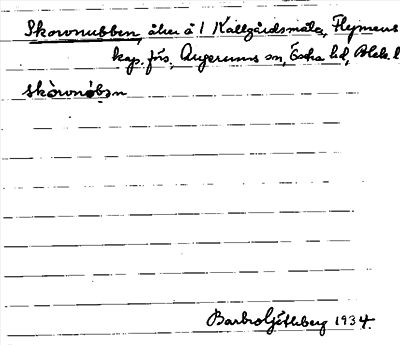 Skovnubben, åker å 1 Kallgårdsmåla, Flymens
kap. förs., Augerums sn, Östra hd, Blek. l
skòvnòbən
Barbro Ljéthberg 1934.